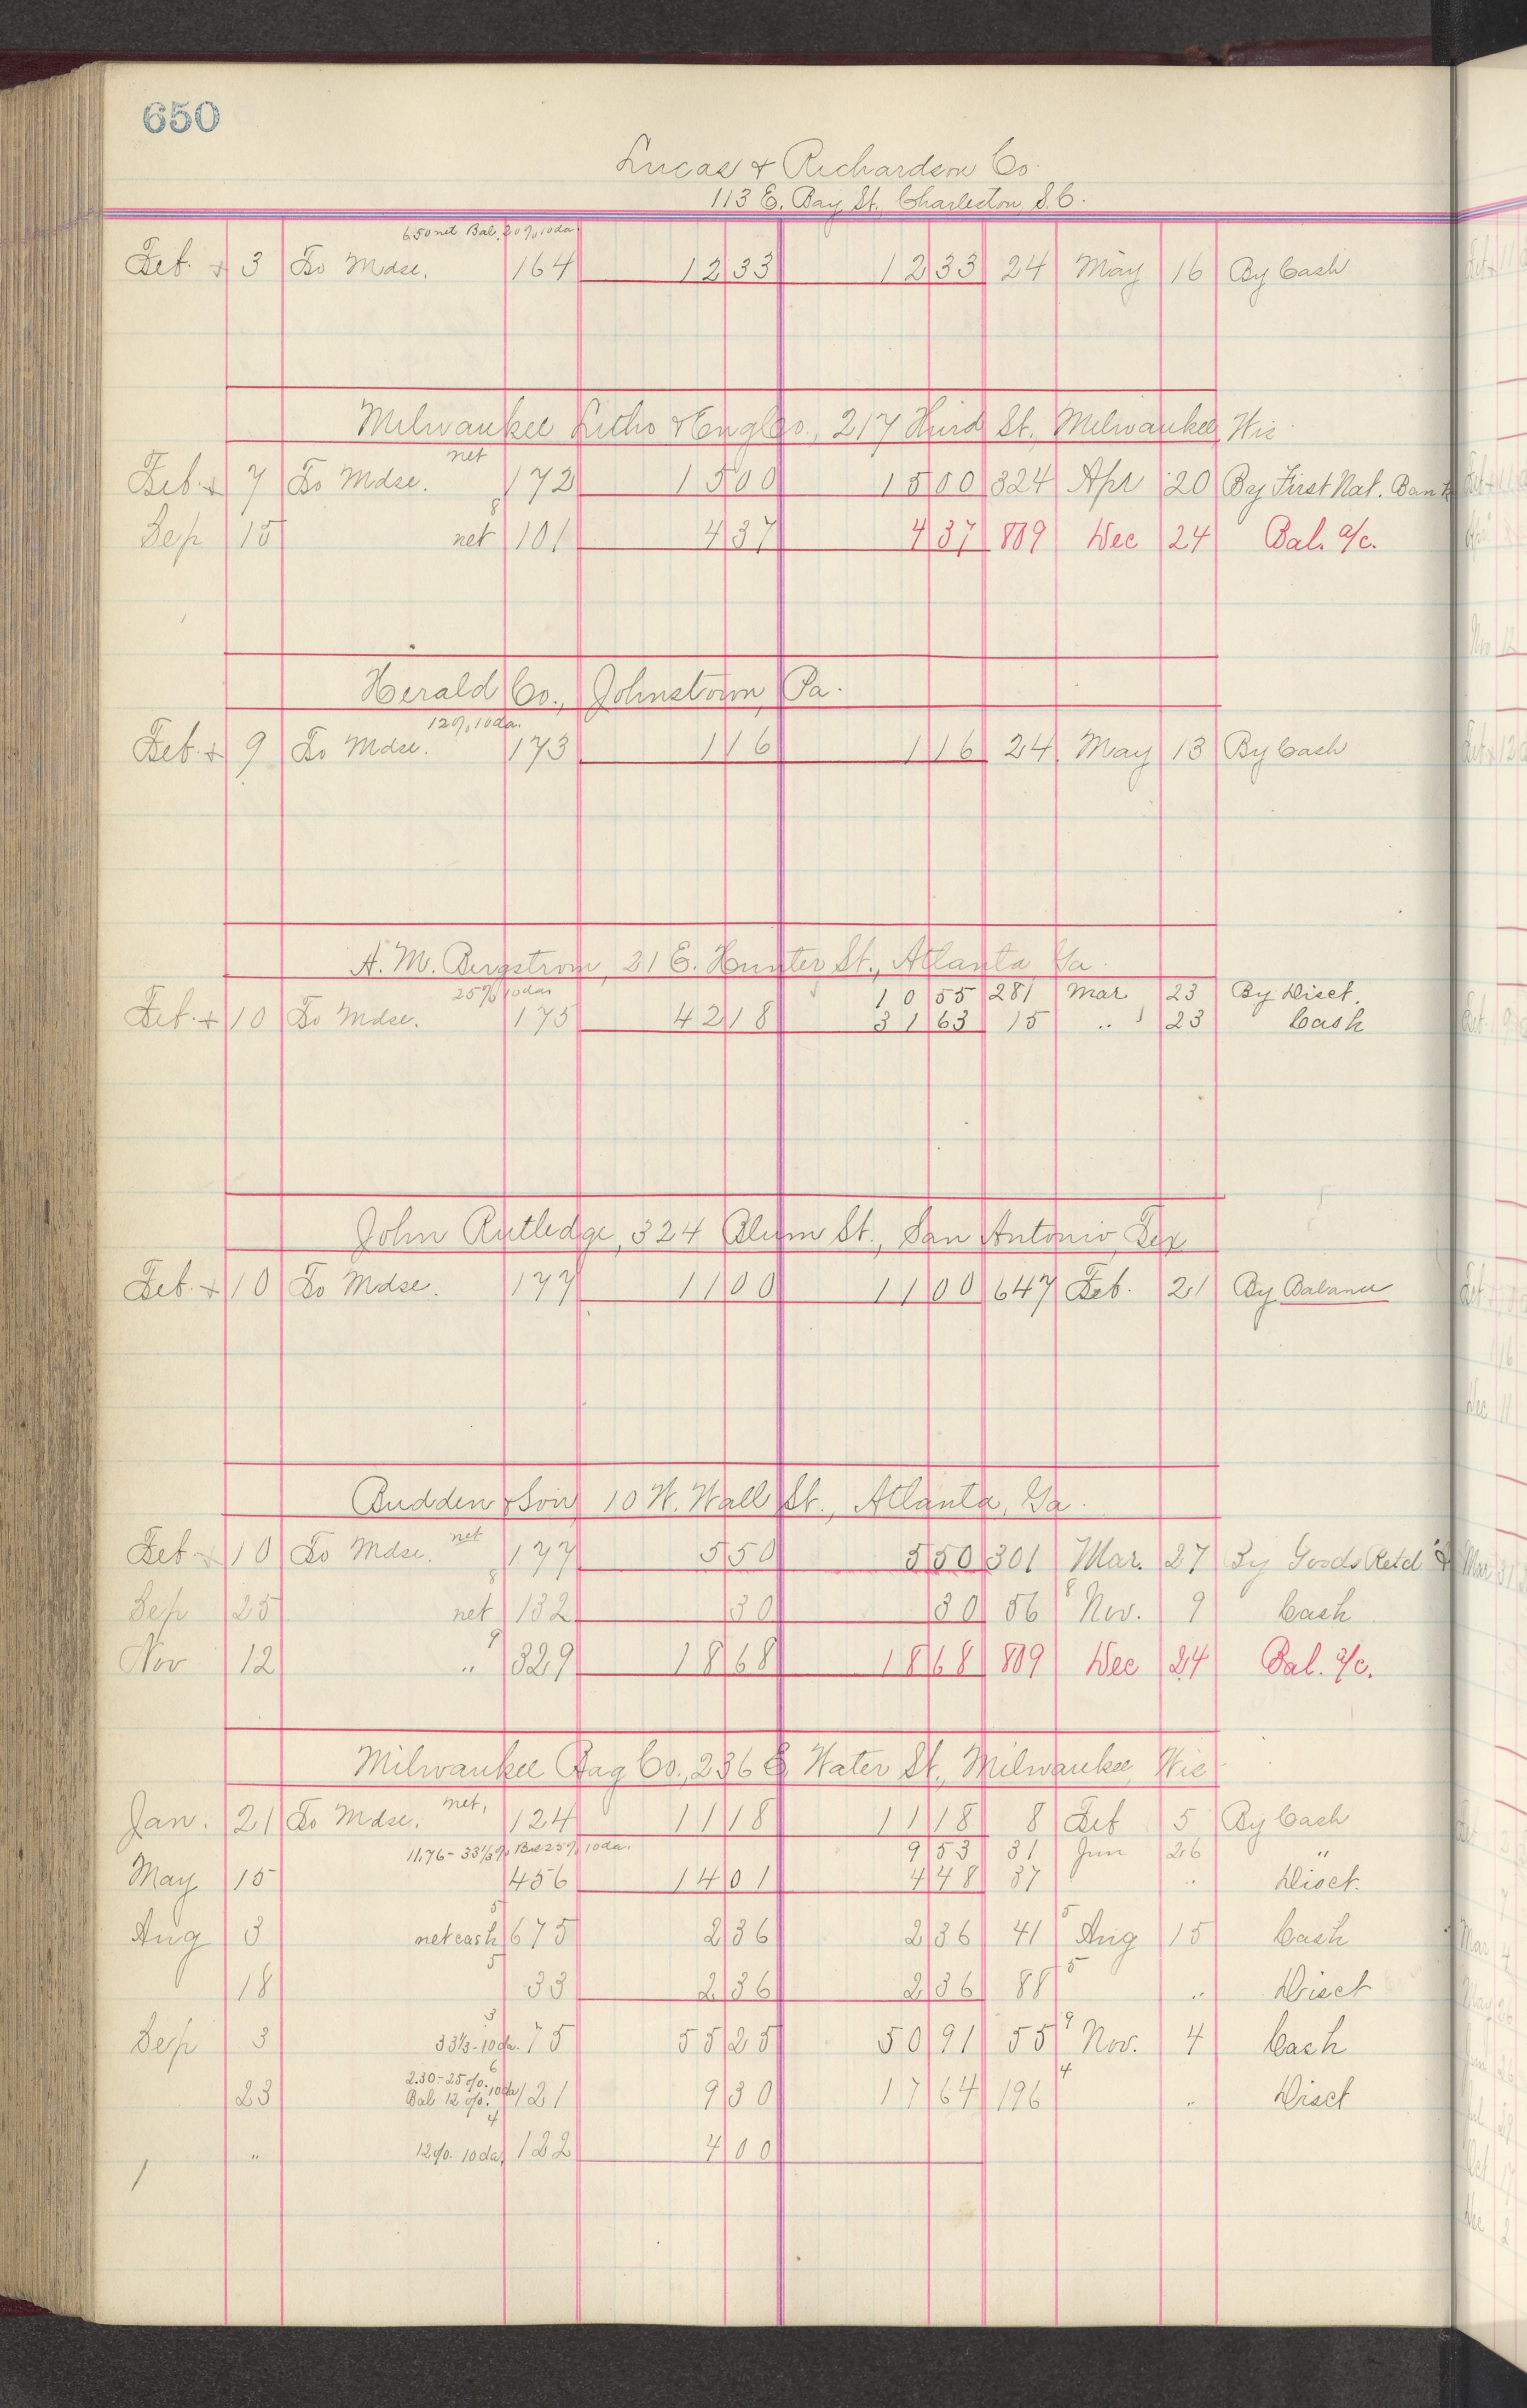 650
Lucas & Richardson Co.
113 E. Bay St., Charleston, S.C.
6.50 net Bal. 20%, 10 da.
Feb. + 3 To Mdse. 164 12 33 12 33 24 May 16 By Cash
Milwaukee Litho & Eng Co., 217 Third St., Milwaukee, Wis.
net
Feb. + 7 To Mdse. 172 15 00 15 00 324 Apr 20 By First Nat. Bank
8
Sep 15 net 101 4 37 4 37 809 Dec 24 Bal. a/c.
Herald Co., Johnstown, Pa.
12%, 10 da.
Feb. + 9 To Mdse. 173 1 16 1 16 24 May 13 By Cash
A. M. Bergstrom, 21 E. Hunter St., Atlanta, Ga.
25% 10 da 10 55 281 Mar 23 By Disct.
Feb. + 10 To Mdse. 175 42 18 31 63 15 " 23 Cash
John Rutledge, 324 Blum St., San Antonio, Tex
Feb. + 10 To Mdse. 177 11 00 11 00 647 Feb. 21 By Balance
Budden & Son, 10 W. Wall St., Atlanta, Ga.
net
Feb + 10 To Mdse. 177 5 50 5 50 301 Mar. 27 By Goods Retd
8 8
Sep 25 net 132 30 30 56 Nov. 9 Cash
9
Nov 12 " 329 18 68 18 68 809 Dec 24 Bal. a/c.
Milwaukee Bag Co., 236 E. Water St., Milwaukee, Wis
net,
Jan. 21 To Mdse. 124 11 18 11 18 8 Feb 5 By Cash
11.76 - 33 1/3% Bal 25%, 10 da. 9 53 31 Jun 26 "
May 15 456 14 01 4 48 37 " Disct.
5 5
Aug 3 net cash 675 2 36 2 36 41 Aug 15 Cash
5 5
18 33 2 36 2 36 88 " Disct
3 9
Sep 3 33 1/3 - 10 da. 75 55 25 50 91 55 Nov. 4 Cash
2.30 - 25%. 6 4
23 Bal 12%. 10 da 121 9 30 17 64 196 " Disct
4
" 12%. 10 da 122 4 00